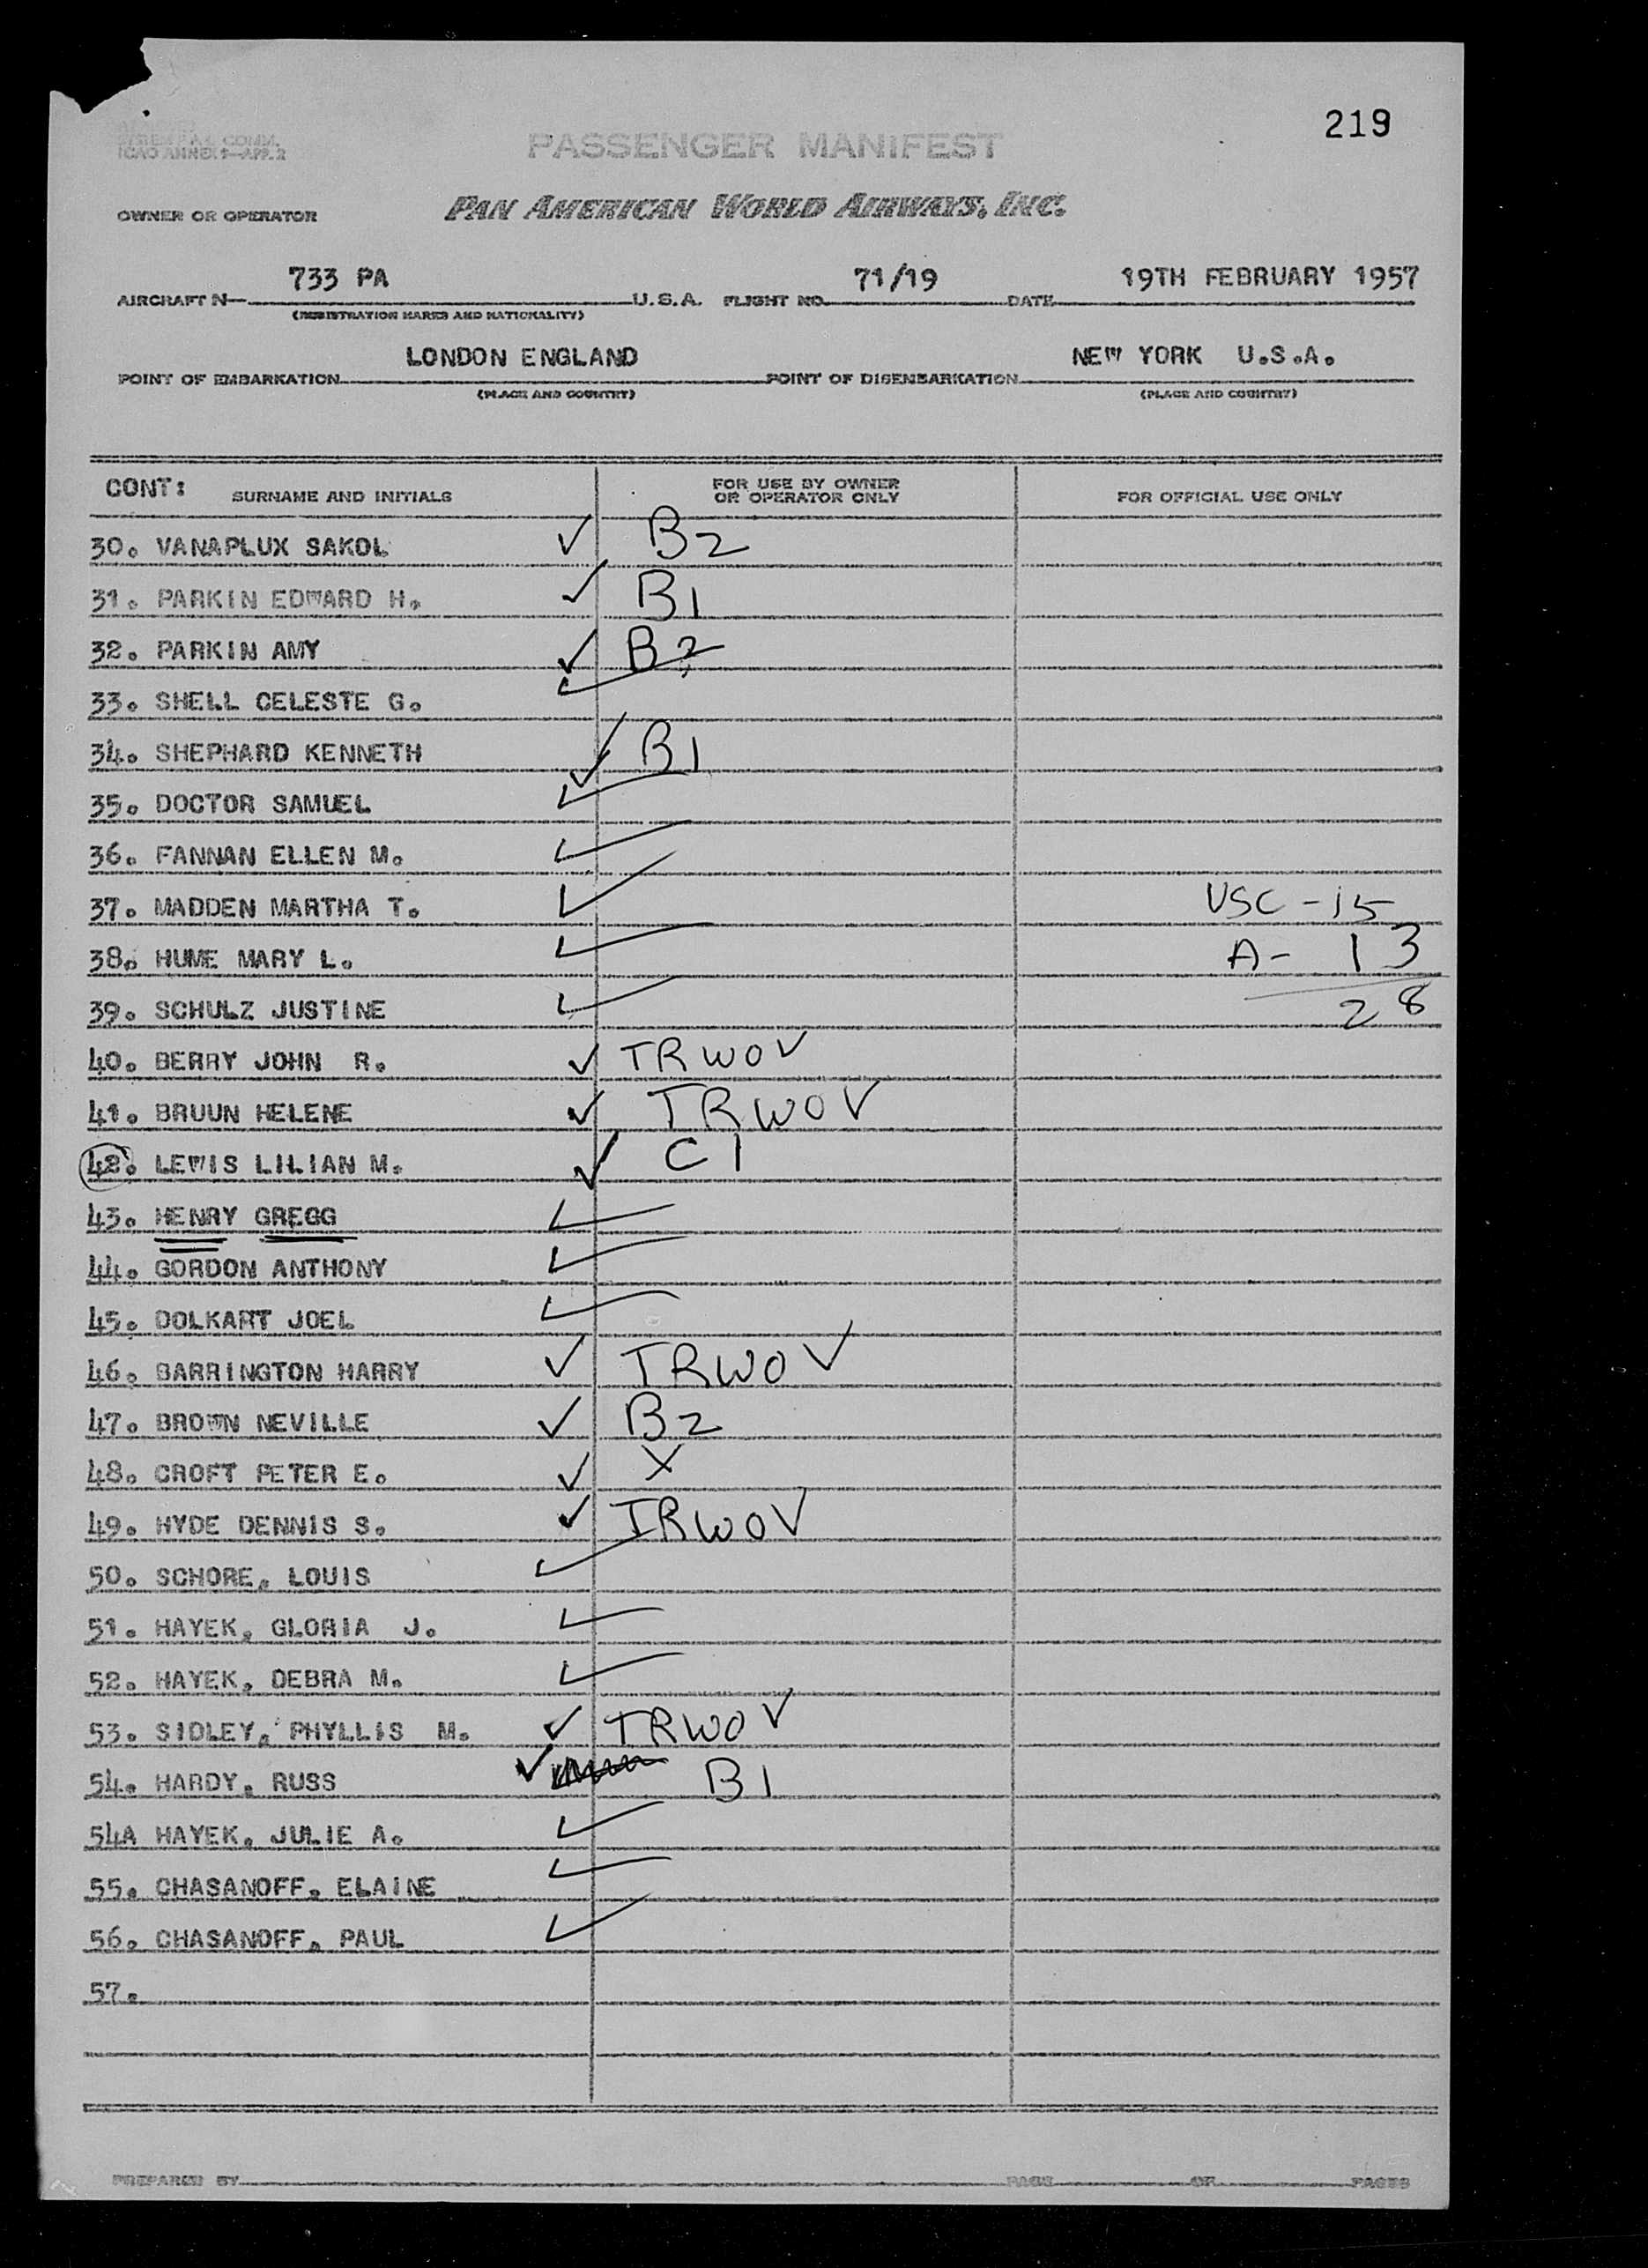 219
ICAO ANNEX 9—APP. 2
PASSENGER MANIFEST
OWNER OR OPERATOR PAN AMERICAN WORLD AIRWAYS, INC.
733 PA 71/19 19TH FEBRUARY 1957
AIRCRAFT N— U.S.A. FLIGHT NO. DATE
(REGISTRATION MARKS AND NATIONALITY)
LONDON ENGLAND NEW YORK U.S.A.
POINT OF EMBARKATION POINT OF DISEMBARKATION
(PLACE AND COUNTRY) (PLACE AND COUNTRY)
CONT: SURNAME AND INITIALS FOR USE BY OWNER OR OPERATOR ONLY FOR OFFICIAL USE ONLY
30. VANAPLUX SAKOL ✓ B2
31. PARKIN EDWARD H. ✓ B1
32. PARKIN AMY ✓ B2
33. SHELL CELESTE G. ✓
34. SHEPHARD KENNETH ✓ B1
35. DOCTOR SAMUEL ✓
36. FANNAN ELLEN M. ✓
37. MADDEN MARTHA T. ✓ USC - 15
38. HUME MARY L. ✓ A - 13
39. SCHULZ JUSTINE ✓ 28
40. BERRY JOHN R. ✓ TRWOV
41. BRUUN HELENE ✓ TRWOV
42. LEWIS LILIAN M. ✓ C1
43. HENRY GREGG ✓
44. GORDON ANTHONY ✓
45. DOLKART JOEL ✓
46. BARRINGTON HARRY ✓ TRWOV
47. BROWN NEVILLE ✓ B2
48. CROFT PETER E. ✓ X
49. HYDE DENNIS S. ✓ TRWOV
50. SCHORE, LOUIS ✓
51. HAYEK, GLORIA J. ✓
52. HAYEK, DEBRA M. ✓
53. SIDLEY, PHYLLIS M. ✓ TRWOV
54. HARDY, RUSS ✓ B1
54A HAYEK, JULIE A. ✓
55. CHASANOFF, ELAINE ✓
56. CHASANOFF, PAUL ✓
57.
PREPARED BY PAGE OF PAGES